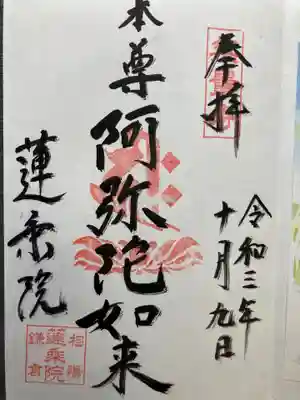 奉拝
令和三年
十月九日
本尊阿弥陀如来
蓮乗院
相陽
鎌倉
蓮乗院